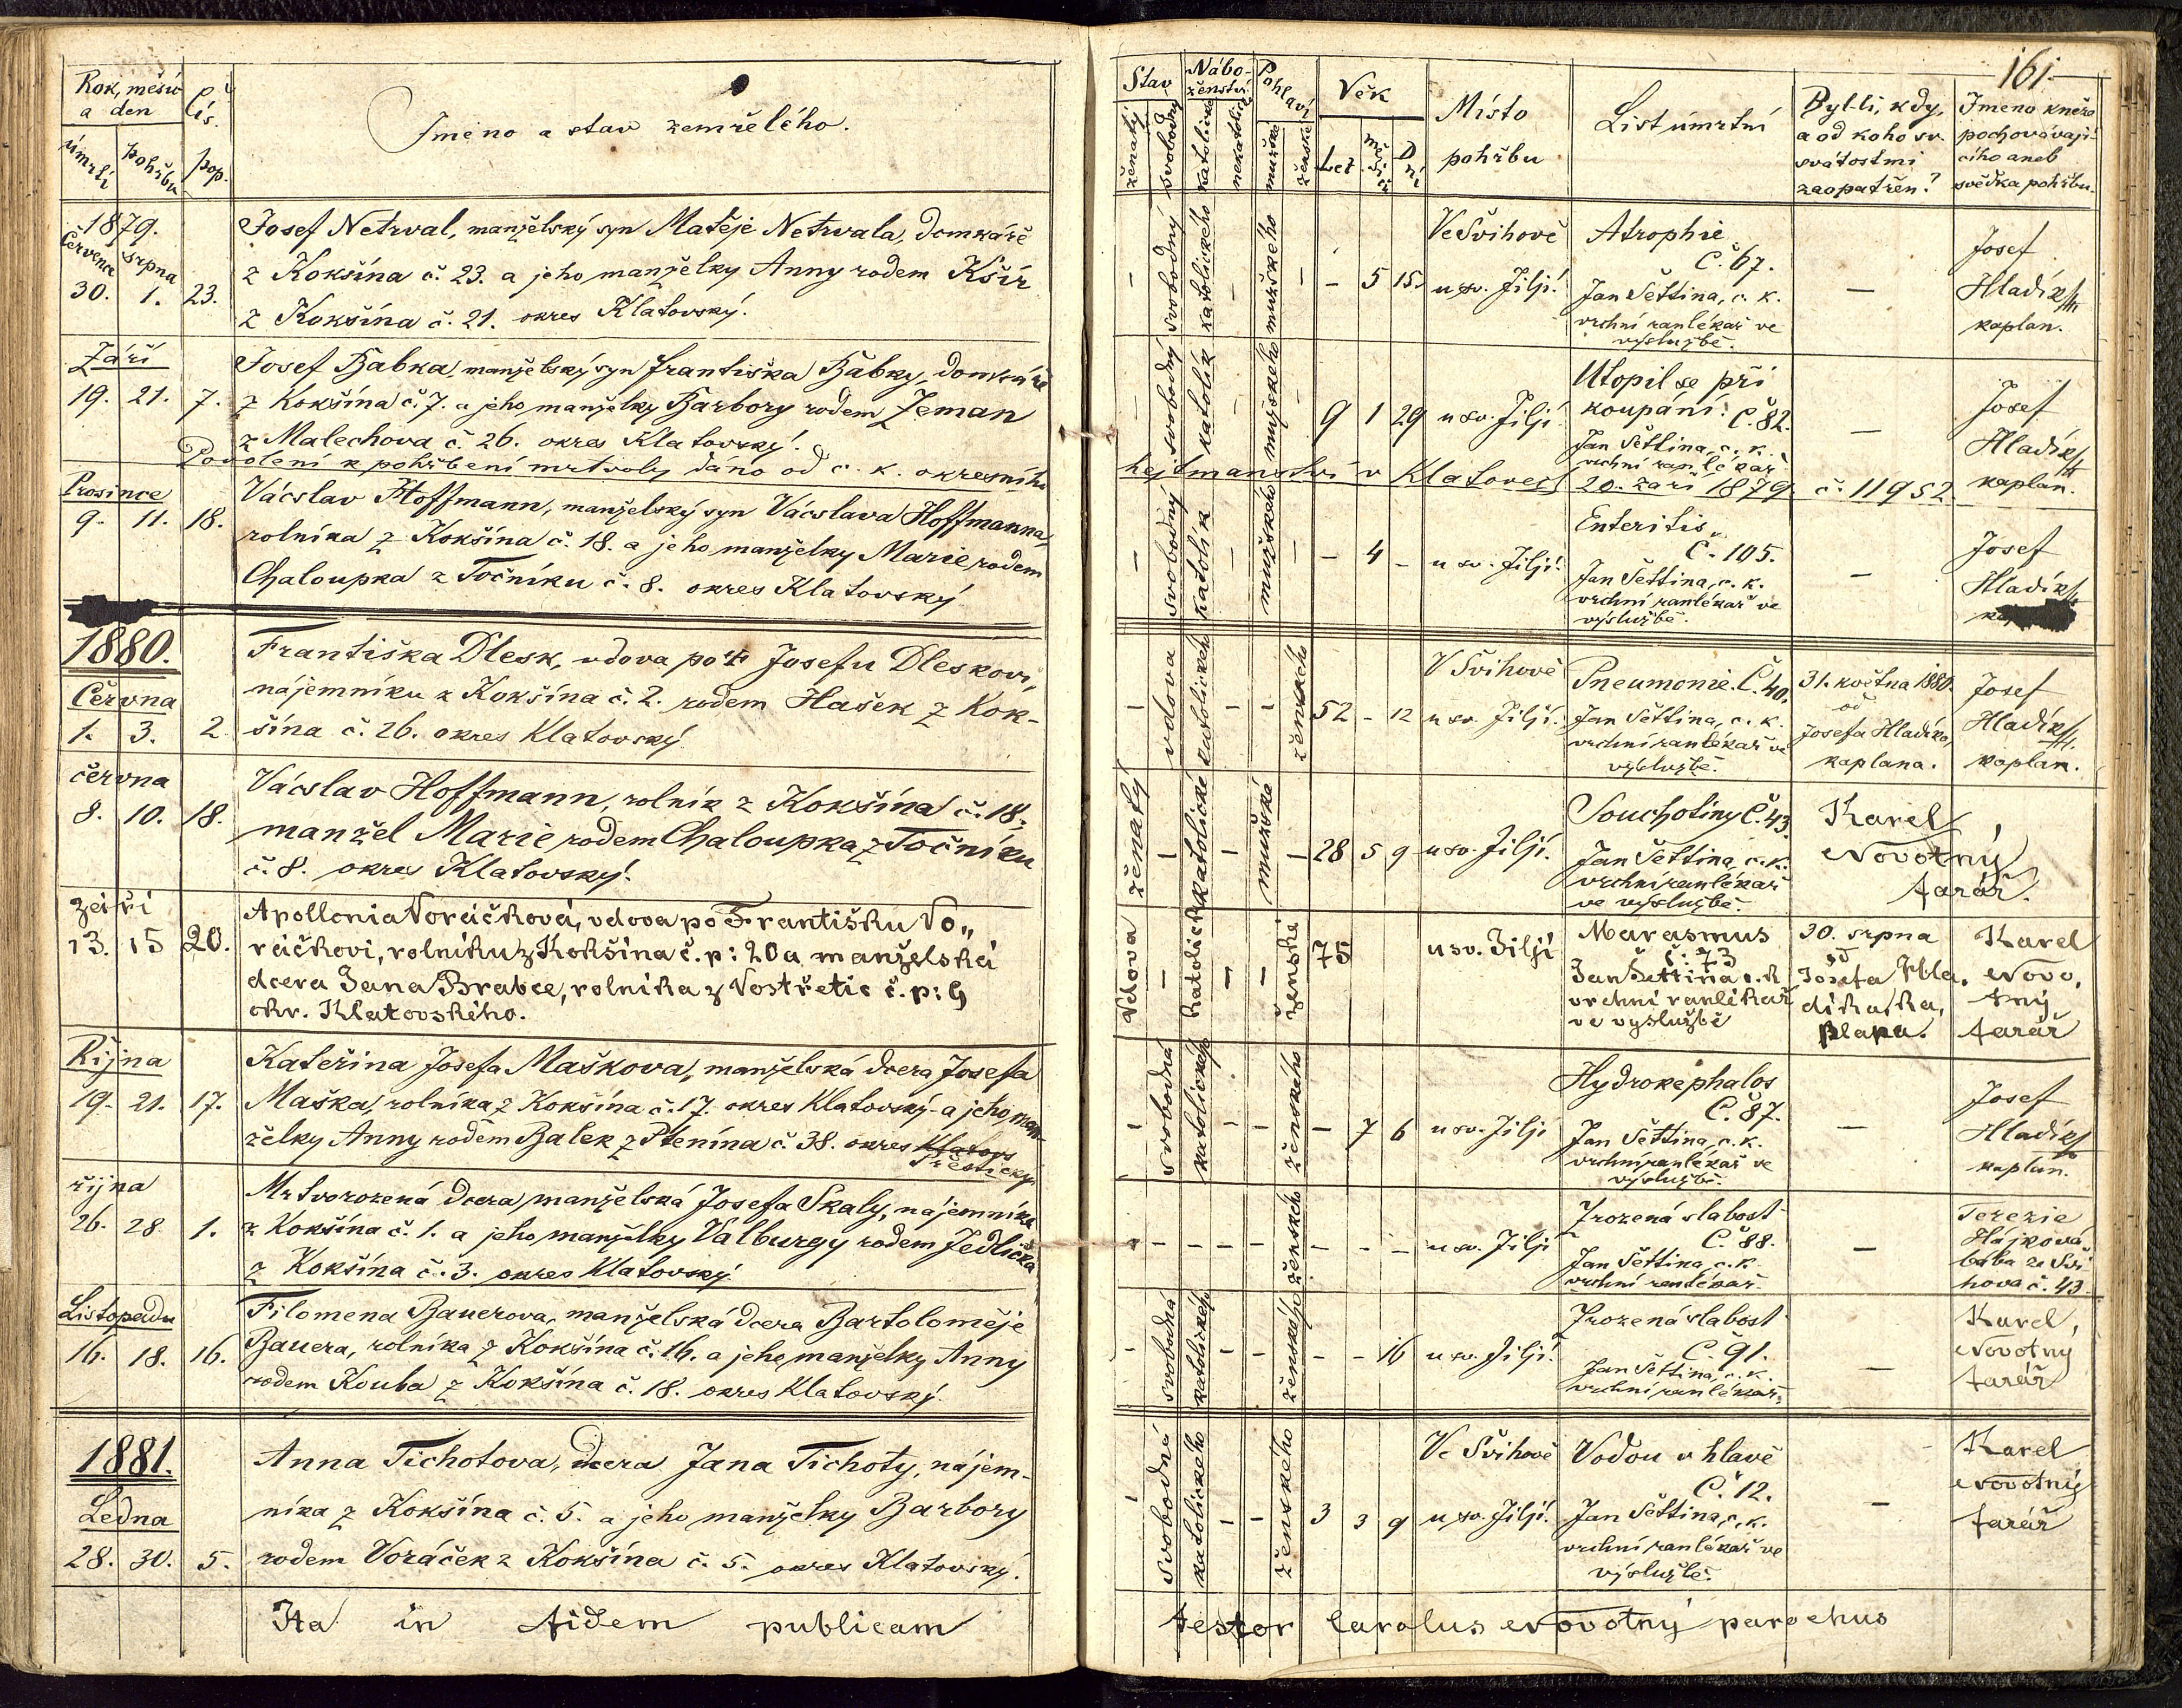 161.
Rok, měsíc
a den
Čís.
úmrtí
pohřbu
pop.
Jmeno a stav zemřelého.
Stav
Nábo-
ženství
Pohlaví
Věk
Místo
pohřbu
List úmrtní
Byl-li, kdy,
a od koho sv.
svátostmi
zaopatřen?
Jmeno kněze
pochovávají-
cího aneb
svědka pohřbu.
ženatý
svobodný
katolické
nekatolické
mužské
ženské
Let
měsíců
Dní
1879.
Července
srpna
30. 1. 23.
Josef Netrval, manželský syn Matěje Netrvala, domkáře
z Kokšína č. 23. a jeho manželky Anny rodem Kšír
z Kokšína č. 21. okres Klatovský.
– svobodný katolického – mužského – – 5 15.
Ve Švihově
u sv. Jiljí.
Atrophie
Č. 67.
Jan Šettina, c. k.
vrchní ranlékař ve
výslužbě.
–
Josef
Hladík
kaplan.
Září
19. 21. 7.
Josef Babka, manželský syn Františka Babky, domkáře
z Kokšína č. 7. a jeho manželky Barbory rodem Zeman
z Malechova č. 26. okres Klatovský.
– svobodný katolík – mužského – 9 1 29 u sv. Jiljí.
Utopil se při
koupání. Č. 82.
Jan Šettina, c. k.
vrchní ranlékař
–
Josef
Hladík
kaplan.
Povolení k pohřbení mrtvoly dáno od c. k. okresního
hejtmanství v Klatovech 20. září 1879 č. 11952.
Prosince
9. 11. 18.
Vácslav Hoffmann, manželský syn Vácslava Hoffmanna,
rolníka z Kokšína č. 18. a jeho manželky Marie rodem
Chaloupka z Točníku č. 8. okres Klatovský
– svobodný katolík – mužského – – 4 – u sv. Jiljí.
Enteritis
Č. 105.
Jan Šettina, c. k.
vrchní ranlékař ve
výslužbě.
–
Josef
Hladík
1880.
Června
1. 3. 2
Františka Dlesk, vdova po † Josefu Dleskovi,
nájemníku z Kokšína č. 2. rodem Hašek z Kok-
šína č. 26. okres Klatovský
– vdova katolického – – ženského 52 – 12
V Švihově
u sv. Jiljí.
Pneumonie. Č. 40.
Jan Šettina, c. k.
vrchní ranlékař ve
výslužbě.
31. května 1880.
od
Josefa Hladíka,
kaplana.
Josef
Hladík
kaplan.
června
8. 10. 18.
Vácslav Hoffmann, rolník z Kokšína č. 18,
manžel Marie rodem Chaloupka z Točníku
č. 8. okres Klatovský.
ženatý – katolické – mužské – 28 5 9 u sv. Jiljí.
Souchotiny Č. 43.
Jan Šettina, c. k.
vrchní ranlékař
ve výslužbě.
Karel
Novotný
farář.
září
13. 15 20.
Apollonia Voráčková, vdova po Františku Vo„
ráčkovi, rolníku z Kokšína č. p: 20 a manželská
dcera Jana Brabce, rolníka z Vostřetic č. p: 9
okr. Klatovského.
Vdova – katolická – – ženské 75 u sv. Jiljí
Marasmus
č: 73
Jan Šettina c. k
vrchní ranlékař
ve vyslužbě
30. srpna
od
Josefa Hla,
díka, ka,
plana.
Karel
Novo,
tný
farář
Října
19. 21. 17.
Kateřina Josefa Maškova, manželská dcera Josefa
Maška, rolníka z Kokšína č. 17. okres Klatovský a jeho man-
želky Anny rodem Balek z Ptenína č. 38. okres Klatovs
Přeštický.
– svobodná katolického – – ženského – 7 6 u sv. Jiljí
Hydrokephalos
Č. 87.
Jan Šettina, c. k.
vrchní ranlékař ve
výslužbě.
–
Josef
Hladík
kaplan.
října
26. 28. 1.
Mrtvorozená dcera manželská Josefa Skaly, nájemníka
z Kokšína č. 1. a jeho manželky Valburgy rodem Jedlička
z Kokšína č. 3. okres Klatovský.
– – – – – ženského – – – u sv. Jiljí
Zrozená slabost
Č. 88.
Jan Šettina, c. k.
vrchní ranlékař.
–
Terezie
Hájková
bába ze Švi
hova č. 43.
Listopadu
16. 18. 16.
Filomena Bauerova, manželská dcera Bartoloměje
Bauera, rolníka z Kokšína č. 16. a jeho manželky Anny
rodem Kouba z Kokšína č. 18. okres Klatovský.
– svobodná katolického – – ženského – – 16 u sv. Jiljí.
Zrozená slabost
Č. 91.
Jan Šettina, c. k.
vrchní ranlékař.
–
Karel
Novotný
farář
1881.
Ledna
28. 30. 5.
Anna Tichotova, dcera Jana Tichoty, nájem-
níka z Kokšína č. 5. a jeho manželky Barbory
rodem Voráček z Kokšína č. 5. okres Klatovský.
– svobodná katolického – – ženského 3 3 9
Ve Švihově
u sv. Jiljí.
Vodou v hlavě
Č. 12.
Jan Šettina, c. k.
vrchní ranlékař ve
výslužbě.
–
Karel
Novotný
farář
Ita in fidem publicam testor Carolus Novotný parochus